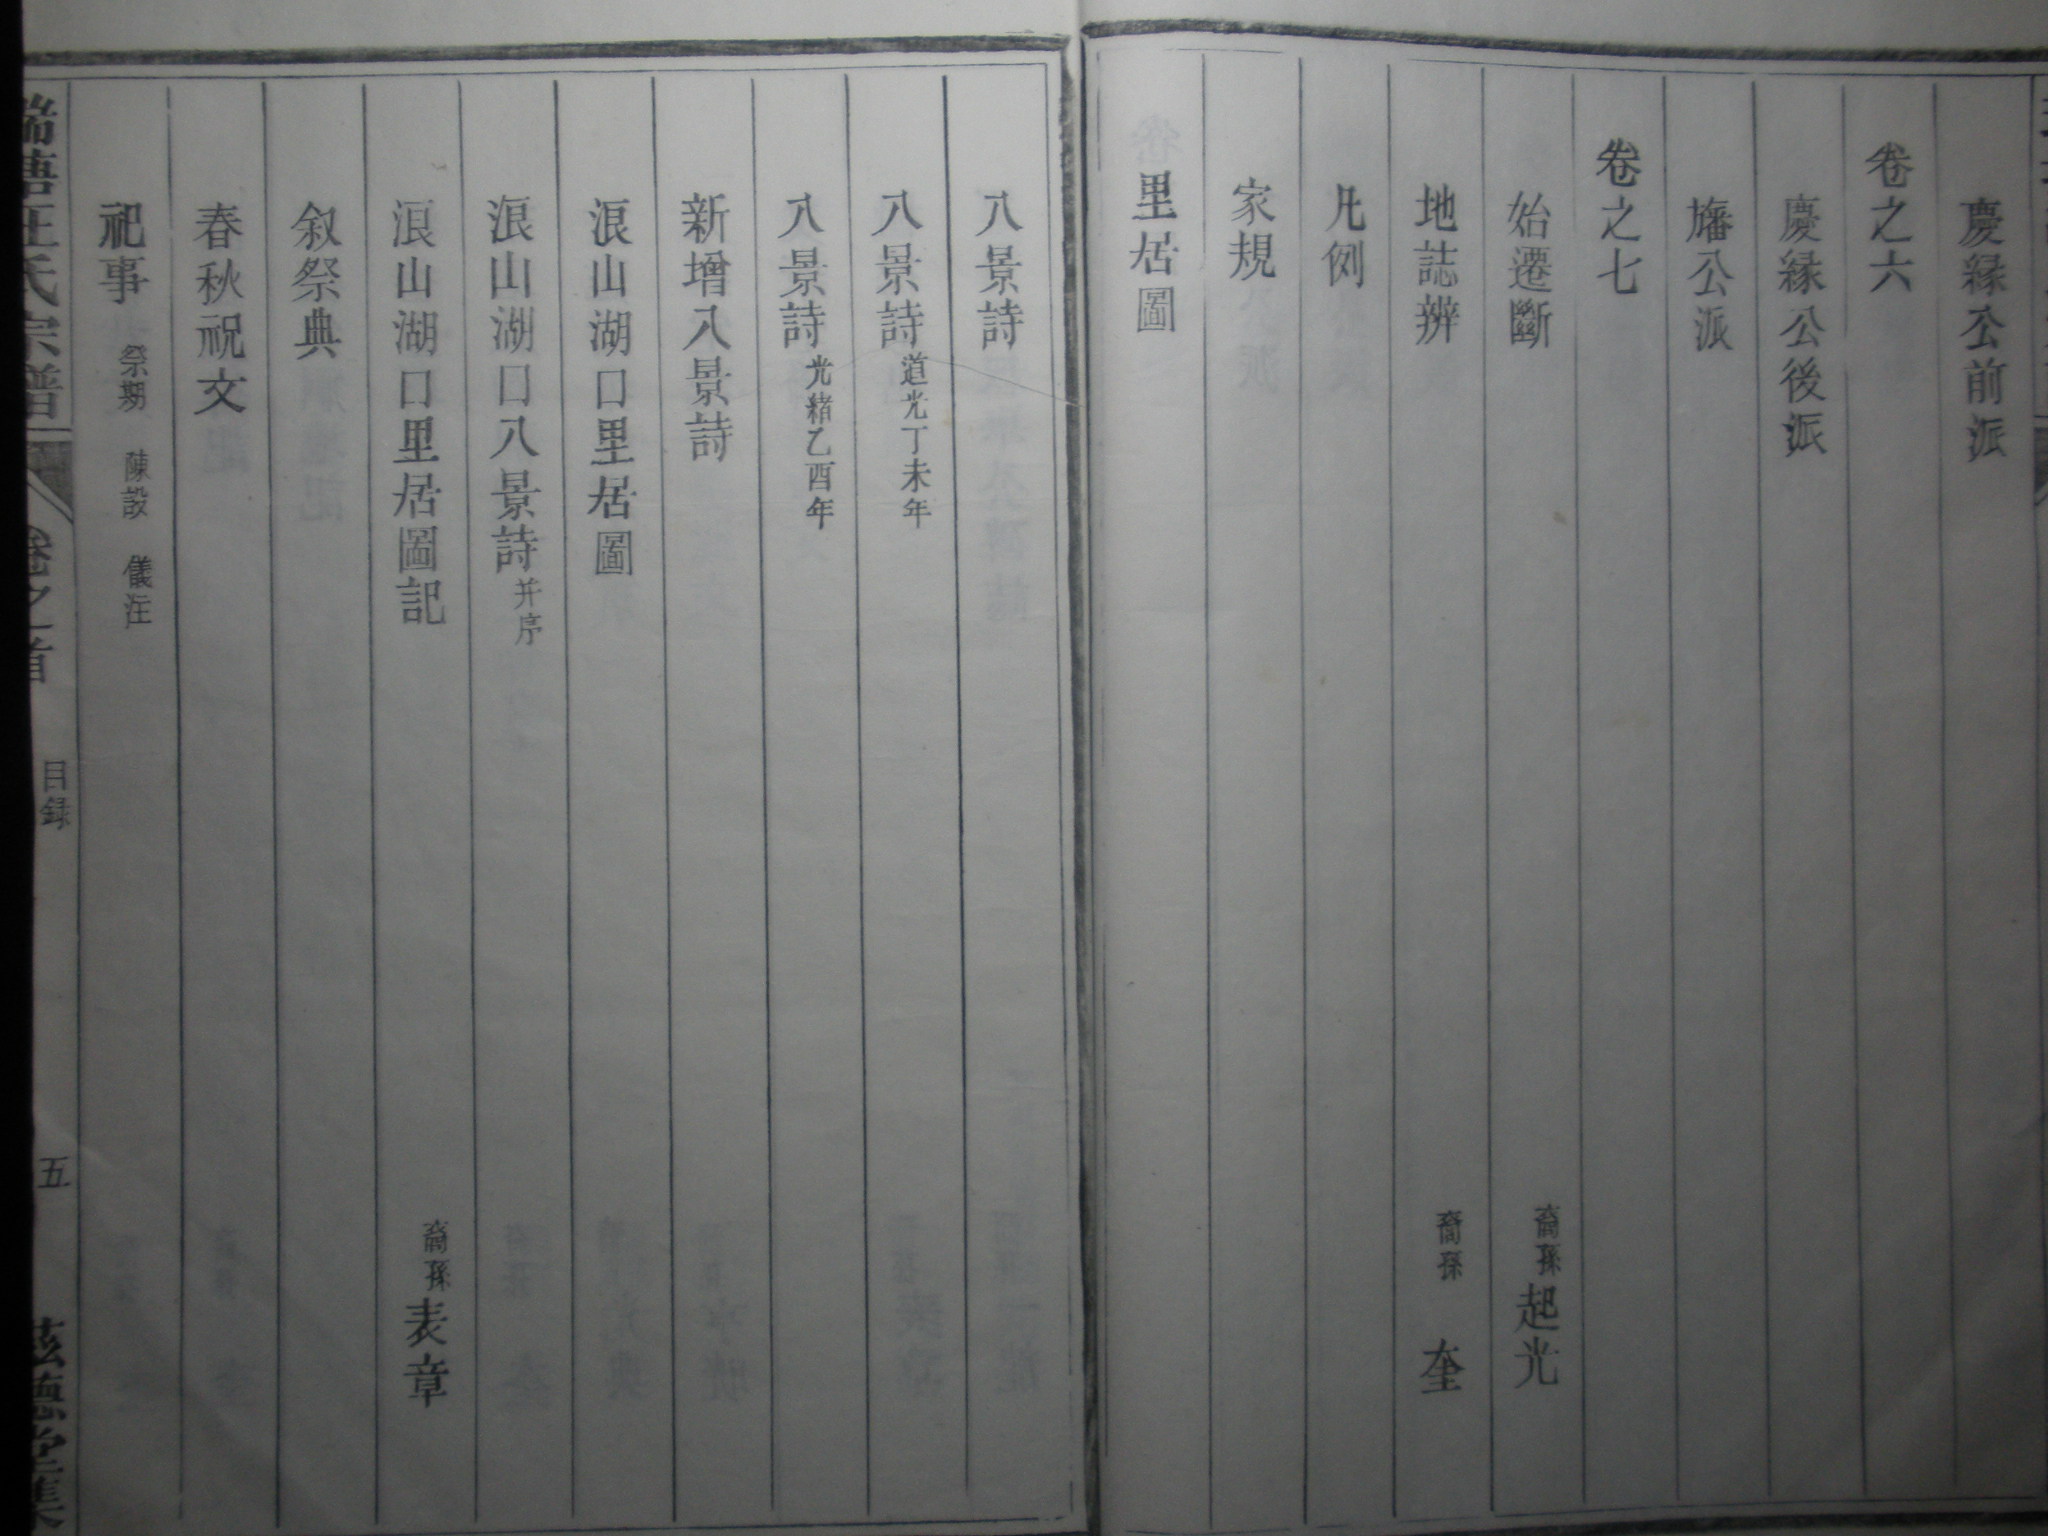 慶緣公前派
卷之六
慶緣公後派
旛公派
卷之七
始遷斷 裔孫 起光
地誌辨 裔孫 奎
凡例
家規
里居圖
八景詩
八景詩 道光丁未年
八景詩 光緒乙酉年
新增八景詩
浪山湖口里居圖
浪山湖口八景詩 并序
浪山湖口里居圖記 裔孫 表章
叙祭典
春秋祝文
祀事 祭期 陳設 儀注
汪氏宗譜 卷之首 目録 五 德堂集